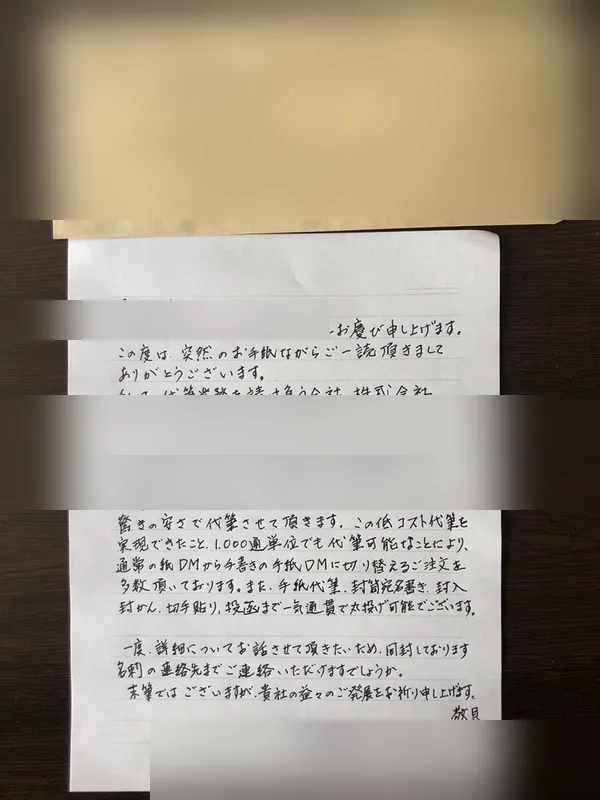 お慶び申し上げます。
この度は、突然のお手紙ながらご一読頂きまして
ありがとうございます。
代筆業務を請け負う会社、株式会社
驚きの安さで代筆させて頂きます。この低コスト代筆を
実現できたこと、1,000通単位でも代筆可能なことにより、
通常の紙DMから手書きの手紙DMに切り替えるご注文を
多数頂いております。また、手紙代筆、封筒宛名書き、封入
封かん、切手貼り、投函まで一気通貫で丸投げ可能でございます。
一度、詳細についてお話させて頂きたいため、同封しております
名刺の連絡先までご連絡いただけますでしょうか。
末筆ではございますが、貴社の益々のご発展をお祈り申し上げます。
敬具